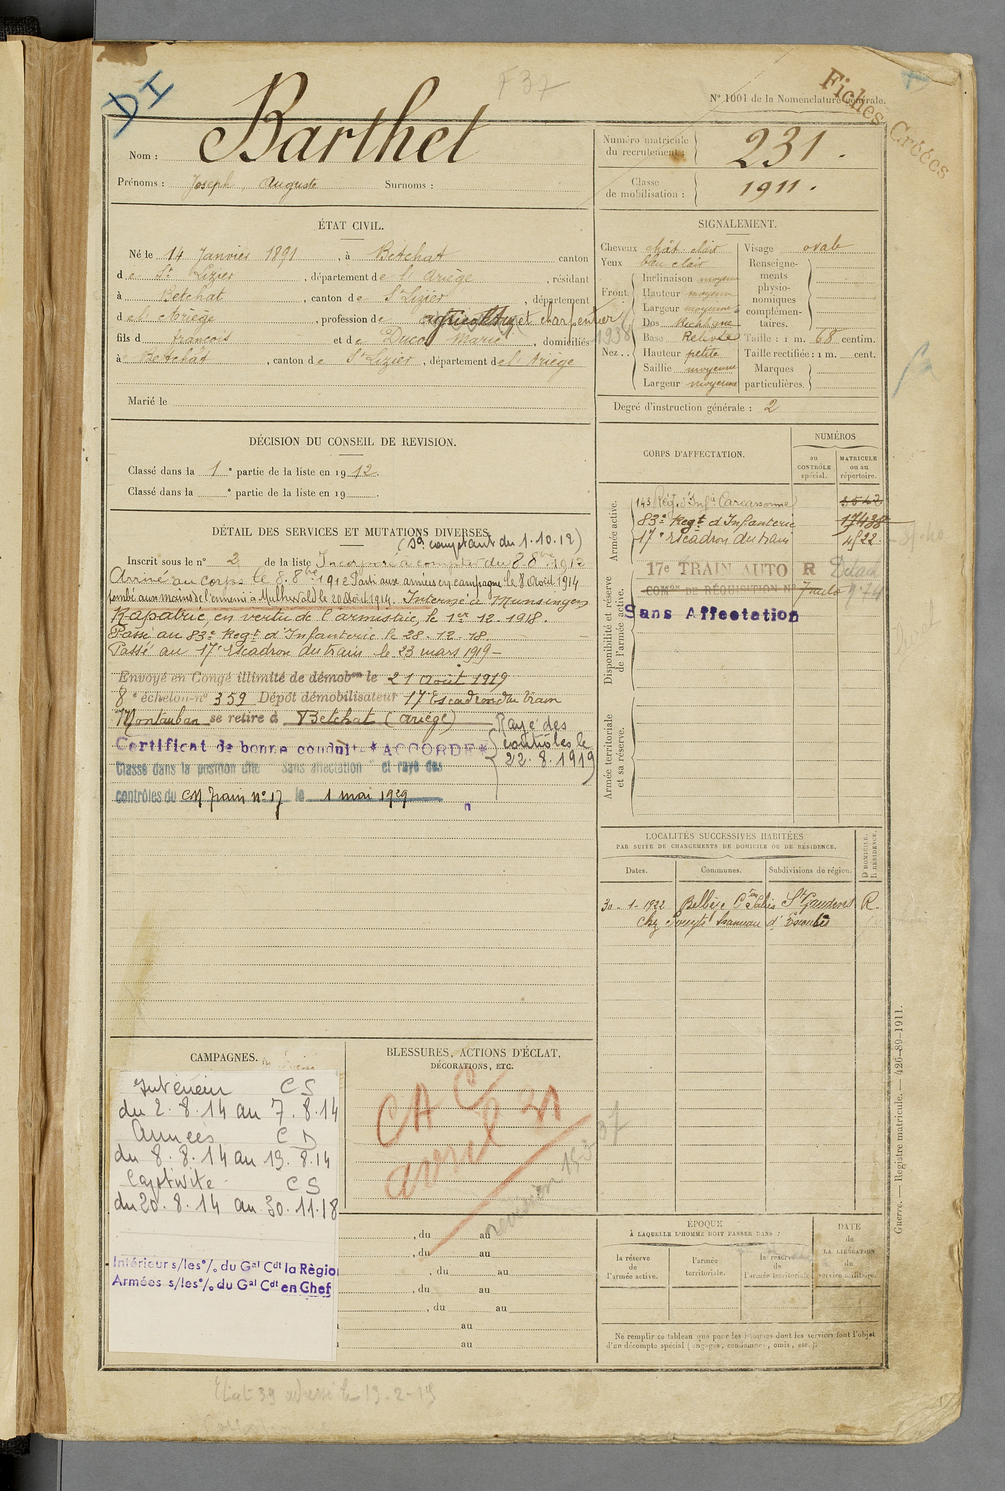 DI
F 37
Fiches Créées
N° 1001 de la Nomenclature générale.
Nom : Barthet
Prénoms : Joseph, Auguste Surnoms :
Numéro matricule du recrutement : 231.
Classe de mobilisation : 1911.
ÉTAT CIVIL.
Né le 14 Janvier 1891, à Betchat canton
de St Lizier, département de l'Ariège, résidant
à Betchat, canton de St Lizier, département
de l'Ariège, profession de agriculteur et charpentier
fils de François et de Duco Marie, domiciliés
à Betchat, canton de St Lizier, département de l'Ariège
Marié le
SIGNALEMENT.
Cheveux chât. clair
Yeux bleu clair
Front.
Inclinaison moyen
Hauteur moyenne
Largeur moyenne
Nez..
Dos Rectiligne
Base Relevée
Hauteur petite
Saillie moyenne
Largeur moyenne
Visage ovale
Renseignements physionomiques complémentaires.
Taille : 1 m. 68 centim.
Taille rectifiée : 1 m. cent.
Marques particulières.
1938
Degré d'instruction générale : 2
DÉCISION DU CONSEIL DE REVISION.
Classé dans la 1e partie de la liste en 1912.
Classé dans la e partie de la liste en 19 .
CORPS D'AFFECTATION.
NUMÉROS
au CONTRÔLE spécial.
MATRICULE ou au répertoire.
Armée active.
143 Rég. d'Inf. Carcassonne
83e Regt d'Infanterie 17438
17e Escadron du train 4522
Disponibilité et réserve de l'armée active.
17e TRAIN AUTO R
COMon DE RÉQUISITION N°
Sans Affectation
Armée territoriale et sa réserve.
DÉTAIL DES SERVICES ET MUTATIONS DIVERSES.
(Sg comptant du 1.10.12)
Inscrit sous le n° 2 de la liste Incorporé à compter du 8 8bre 1912
Arrivé au corps le 8. 8bre 1912 Parti aux armées en campagne le 8 Août 1914
tombé aux mains de l'ennemi à Mulhwald le 20 Août 1914. Interné à Munsingen
Rapatrié, en vertu de l'armistice, le 1er 12. 1918.
Passé au 83e Regt d'Infanterie le 28. 12. 18.
Passé au 17e Escadron du train le 23 mars 1919
Envoyé en Congé illimité de démobon le 21 Août 1919
8e échelon n° 359 Dépôt démobilisateur 17e Escadron du train
Montauban se retire à Betchat (Ariège)
Rayé des contrôles le 22.8.1919
Certificat de bonne conduite "ACCORDÉ"
Classé dans la position dite "Sans affectation" et rayé des
contrôles du CM Train n° 17 le 1 mai 1929
LOCALITÉS SUCCESSIVES HABITÉES
PAR SUITE DE CHANGEMENTS DE DOMICILE OU DE RÉSIDENCE.
Dates.
Communes.
Subdivisions de région.
D. DOMICILE. R. RÉSIDENCE.
30-1-1922 St Gaudens R.
CAMPAGNES.
Intérieur CS
du 2.8.14 au 7.8.14
Armées CD
du 8.8.14 au 19.8.14
Captivité CS
du 20.8.14 au 30.11.18
Intérieur s/les °/° du Gal Cdt la Région
Armées s/les °/° du Gal Cdt en Chef
BLESSURES, ACTIONS D'ÉCLAT,
DÉCORATIONS, ETC.
CAC 21
avril
, du au
, du au
, du au
, du au
, du au
au
au
ÉPOQUE
À LAQUELLE L'HOMME DOIT PASSER DANS :
la réserve de l'armée active.
l'armée territoriale.
la réserve de l'armée territoriale.
DATE de LA LIBÉRATION du service militaire.
Ne remplir ce tableau que pour les hommes dont les services font l'objet
d'un décompte spécial (engagés, condamnés, omis, etc.).
Guerre. — Registre matricule. — 426-89-1911.